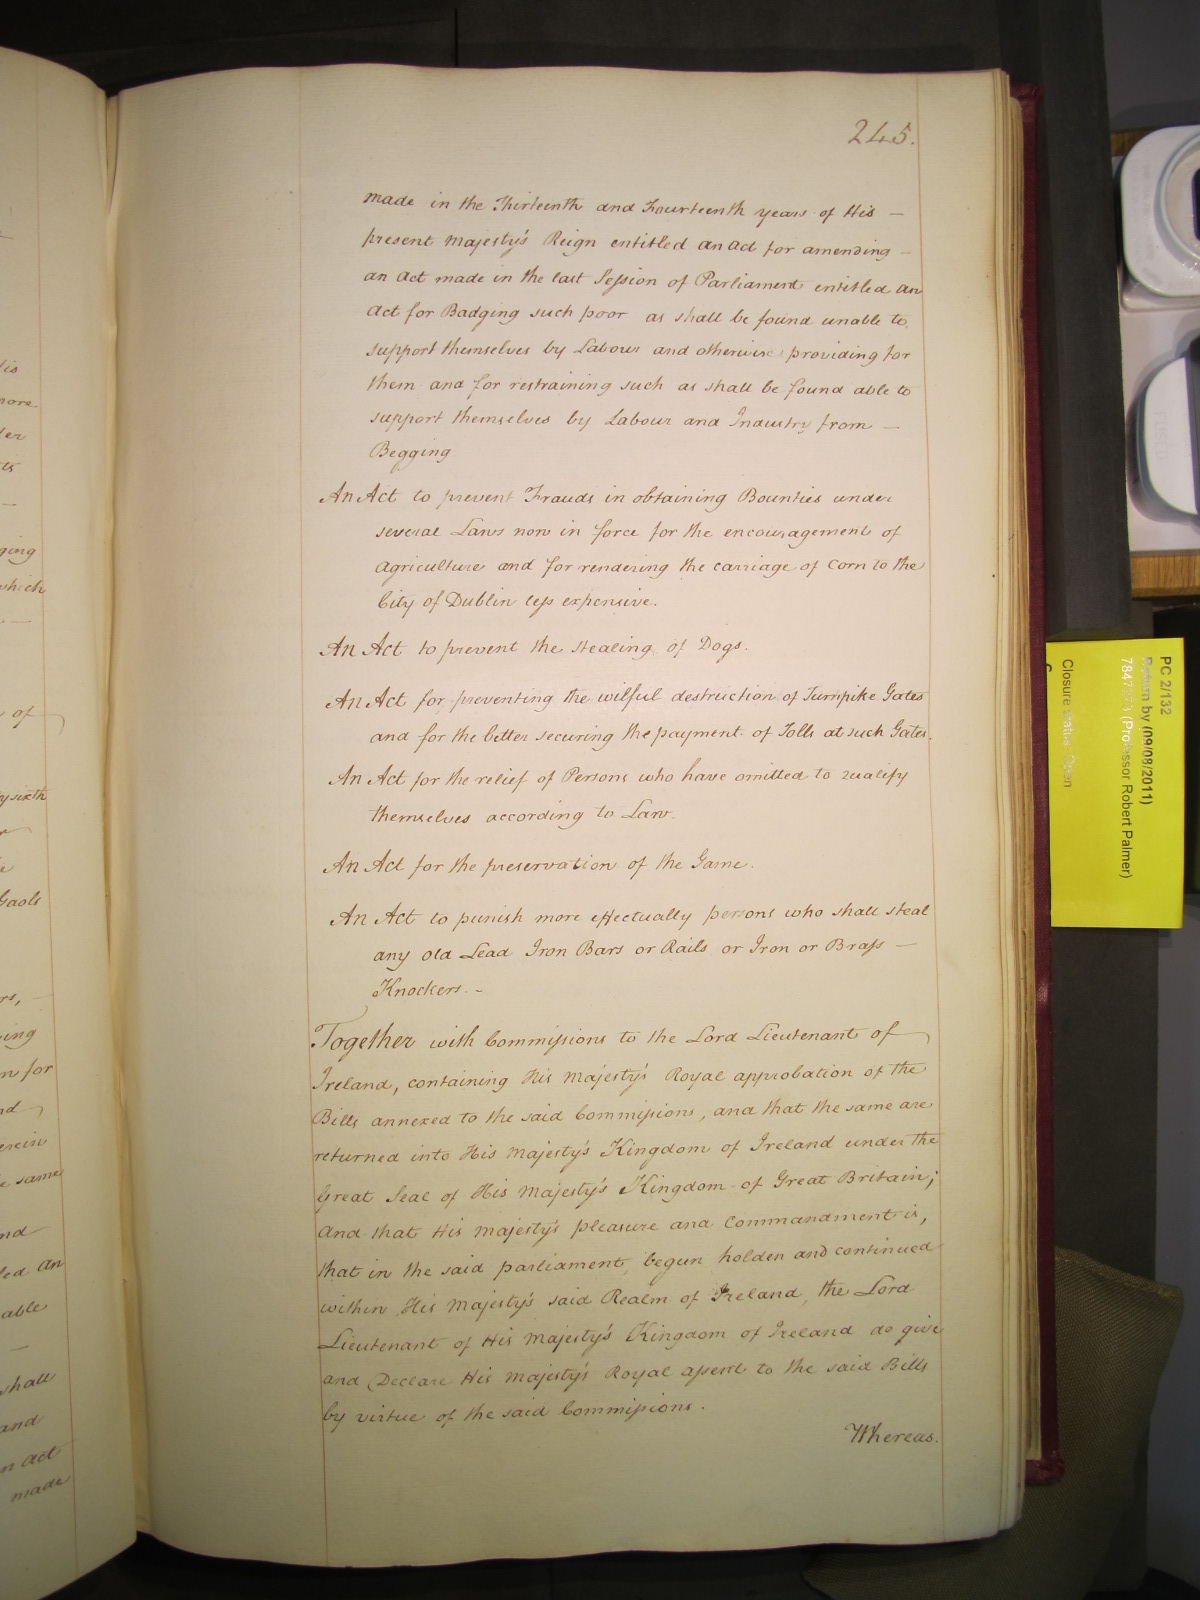 245.
made in the Thirteenth and Fourteenth years of His —
present Majesty's Reign entitled an Act for amending —
an Act made in the last Session of Parliament entitled An
Act for Badging such poor as shall be found unable to
support themselves by Labour and otherwise providing for
them and for restraining such as shall be found able to
support themselves by Labour and Industry from —
Begging
An Act to prevent Frauds in obtaining Bounties under
several Laws now in force for the encouragement of
Agriculture and for rendering the carriage of Corn to the
City of Dublin less expensive.
An Act to prevent the stealing of Dogs.
An Act for preventing the wilful destruction of Turnpike Gates
and for the better securing the payment of Tolls at such Gates.
An Act for the relief of Persons who have omitted to qualify
themselves according to Law.
An Act for the preservation of the Game.
An Act to punish more effectually persons who shall steal
any old Lead Iron Bars or Rails or Iron or Brass —
Knockers. -
Together with Commissions to the Lord Lieutenant of
Ireland, containing His Majesty's Royal approbation of the
Bills annexed to the said Commissions, and that the same are
returned into His Majesty's Kingdom of Ireland under the
Great Seal of His Majesty's Kingdom of Great Britain;
And that His Majesty's pleasure and Commandment is,
that in the said parliament, begun holden and continued
within His Majesty's said Realm of Ireland, the Lord
Lieutenant of His Majesty's Kingdom of Ireland do give
and Declare His Majesty's Royal assent to the said Bills
by virtue of the said Commissions.
Whereas.
more
ging
which
of
y sixth
Gaols
ing
n for
erein
same
able
shall
and
n Act
made
PC 2/132
Return by (09/08/2011)
(Professor Robert Palmer)
Closure status: Open